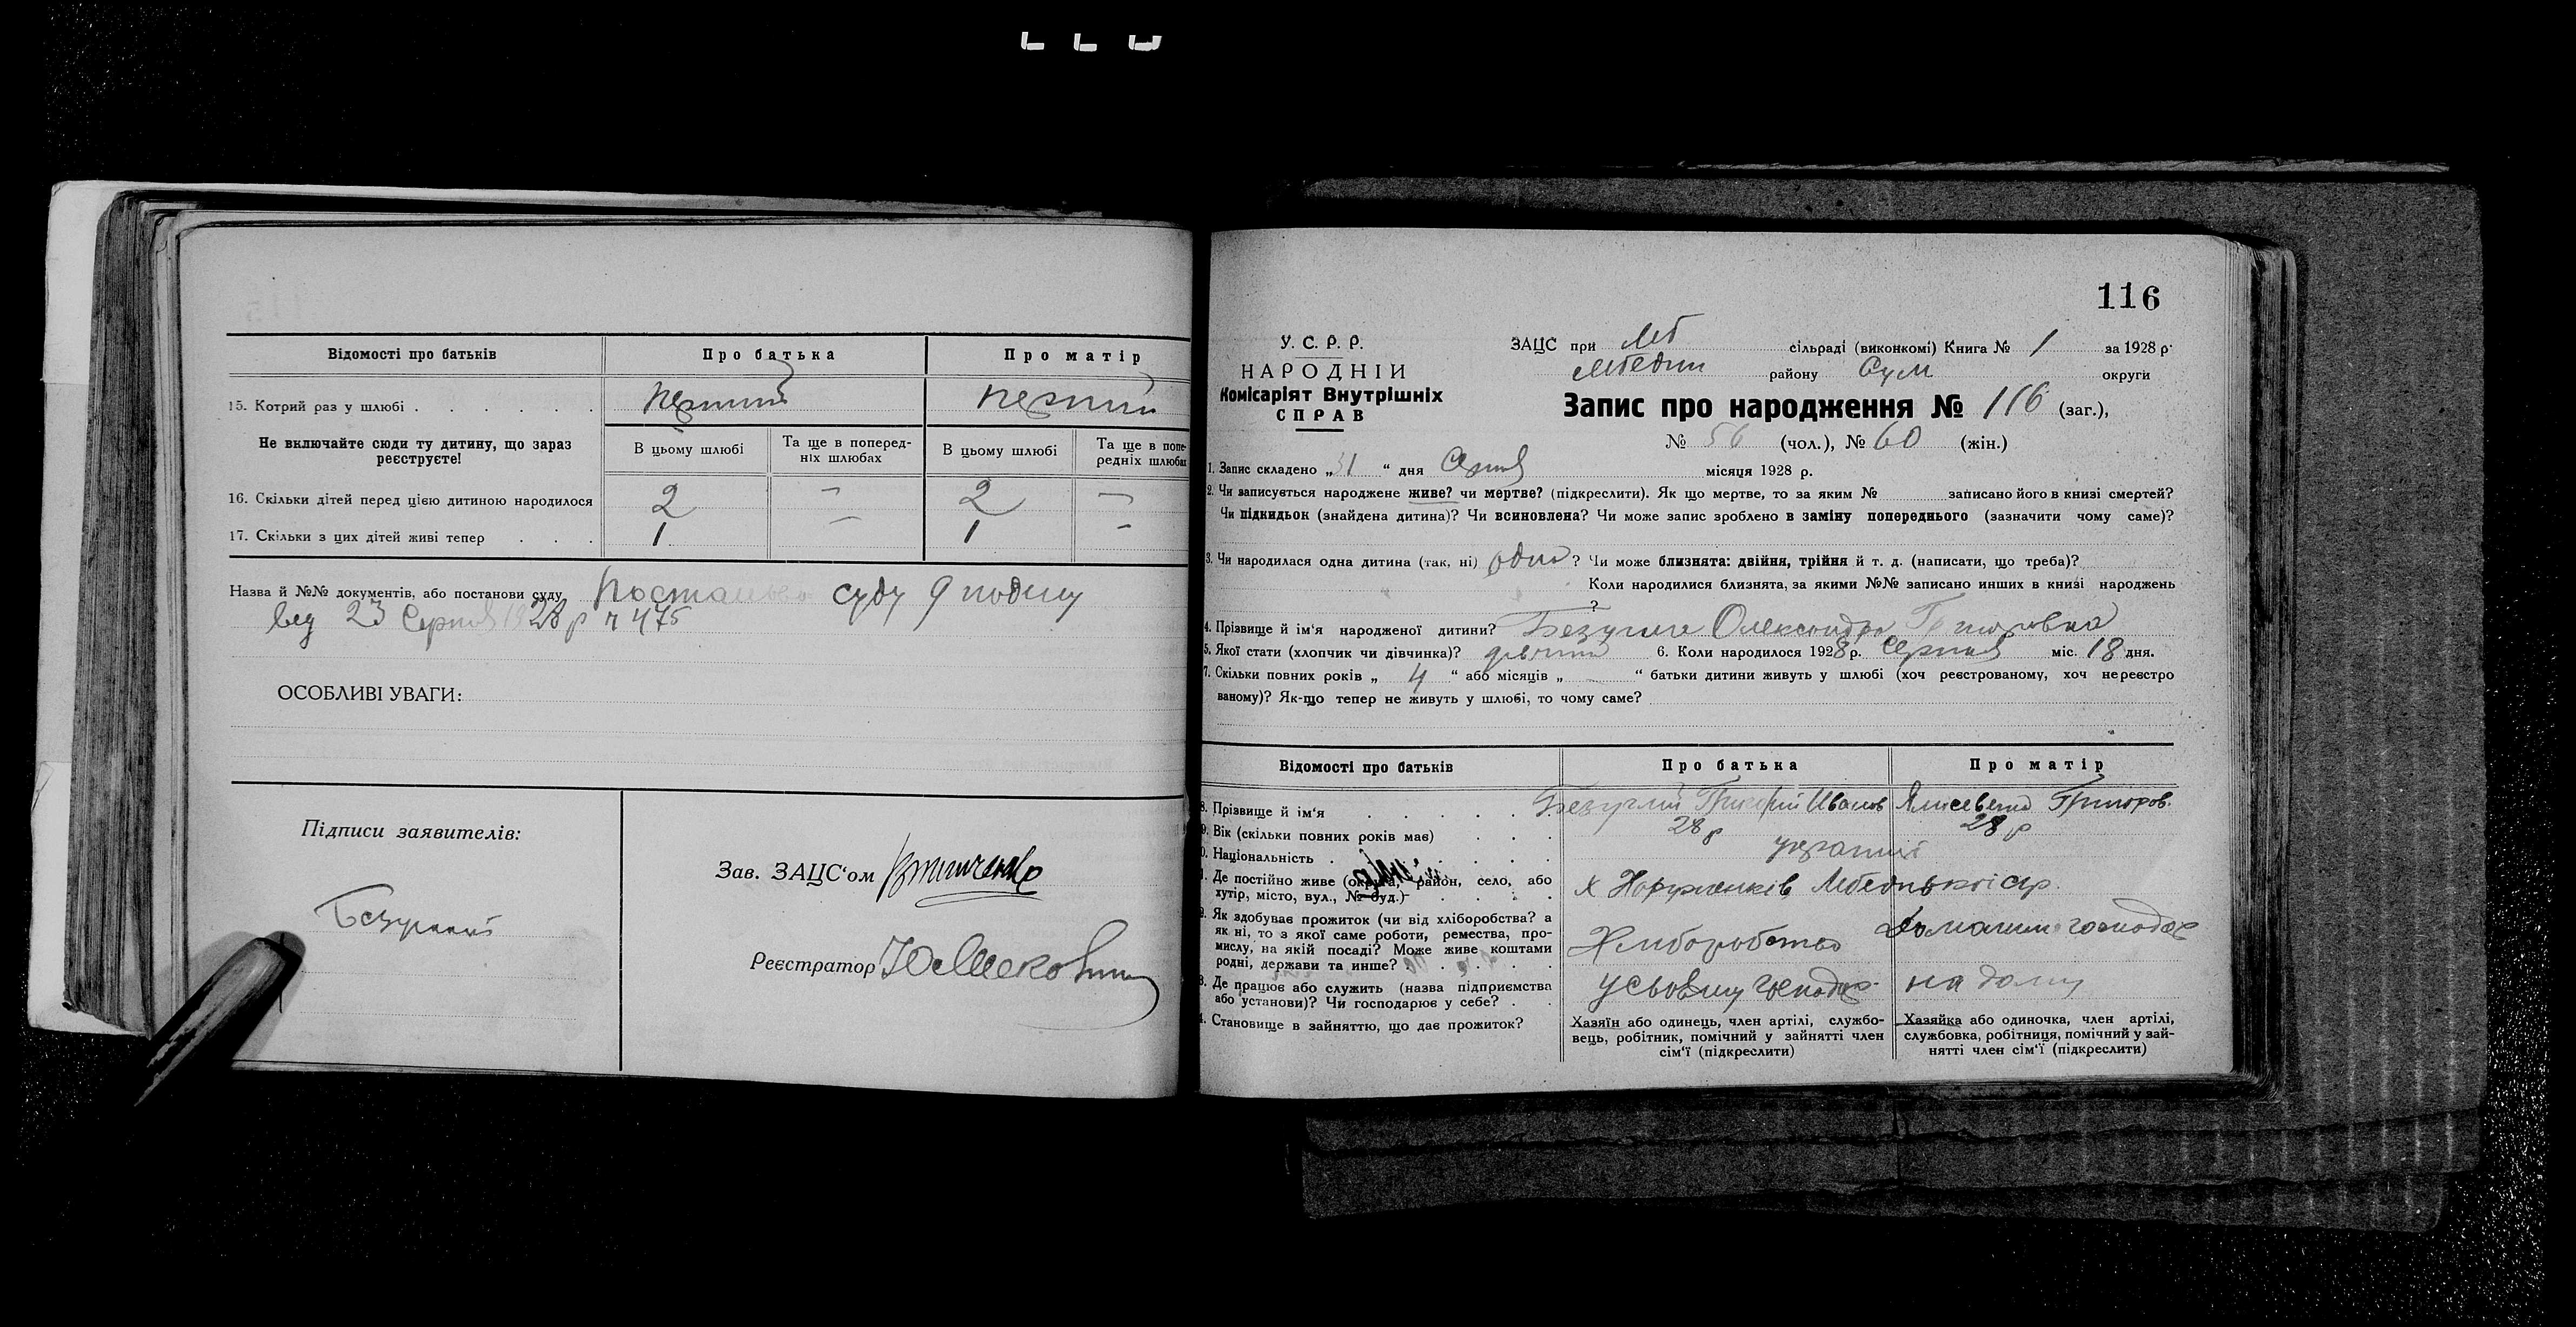 Відомості про батьків Про батька Про матір
15. Котрий раз у шлюбі
Не включайте сюди ту дитину, що зараз реєструєте!
В цьому шлюбі Та ще в попередніх шлюбах В цьому шлюбі Та ще в попередніх шлюбах
16. Скільки дітей перед цією дитиною народилося 2 — 2 —
17. Скільки з цих дітей живі тепер 1 — 1 -
Назва й №№ документів, або постанови суду суду
від 23 Серпня 1928 р 475
ОСОБЛИВІ УВАГИ:
Підписи заявителів:
Безуглий
Зав. ЗАЦС‘ом
Реєстратор
116
У. С. Р. Р.
НАРОДНІЙ
Комісаріят Внутрішніх
СПРАВ
ЗАЦС при Леб сільраді (виконкомі) Книга № 1 за 1928 р.
Лебедин району Сум округи
Запис про народження № 116 (заг.),
№ 56 (чол.), № 60 (жін.)
1. Запис складено „31“ дня Серпня місяця 1928 р.
2. Чи записується народжене живе? чи мертве? (підкреслити). Як що мертве, то за яким № записано його в книзі смертей?
Чи підкидьок (знайдена дитина)? Чи всиновлена? Чи може запис зроблено в заміну попереднього (зазначити чому саме)?
3. Чи народилася одна дитина (так, ні) одна ? Чи може близнята: двійня, трійня й т. д. (написати, що треба)?
Коли народилися близнята, за якими №№ записано инших в книзі народжень
?
4. Прізвище й ім‘я народженої дитини? Безугла Олександра Григоровна
5. Якої стати (хлопчик чи дівчинка)? дівчина 6. Коли народилося 1928 р. Серпня міс. 18 дня.
7. Скільки повних років „ 4 “ або місяців „ “ батьки дитини живуть у шлюбі (хоч реєстрованому, хоч нереєстро
ваному)? Як-що тепер не живуть у шлюбі, то чому саме?
Відомості про батьків Про батька Про матір
8. Прізвище й ім‘я Безуглий Григорій Иванов Ялисевета Григоров.
9. Вік (скільки повних років має) 28 р 28 р
0. Національність українці
1. Де постійно живе (округа, район, село, або
хутір, місто, вул., № буд.) х
2. Як здобуває прожиток (чи від хліборобства? а
як ні, то з якої саме роботи, ремества, про-
мислу, на якій посаді? Може живе коштами
родні, держави та инше?
Хліборобство Домашнє господар
3. Де працює або служить (назва підприємства
або установи)? Чи господарює у себе?
у сьвоєму господар на дому
4. Становище в зайняттю, що дає прожиток?
Хазяїн або одинець, член артілі, службо-
вець, робітник, помічний у зайнятті член
сім‘ї (підкреслити)
Хазяйка або одиночка, член артілі,
службовка, робітниця, помічний у зай-
нятті член сім‘ї (підкреслити)